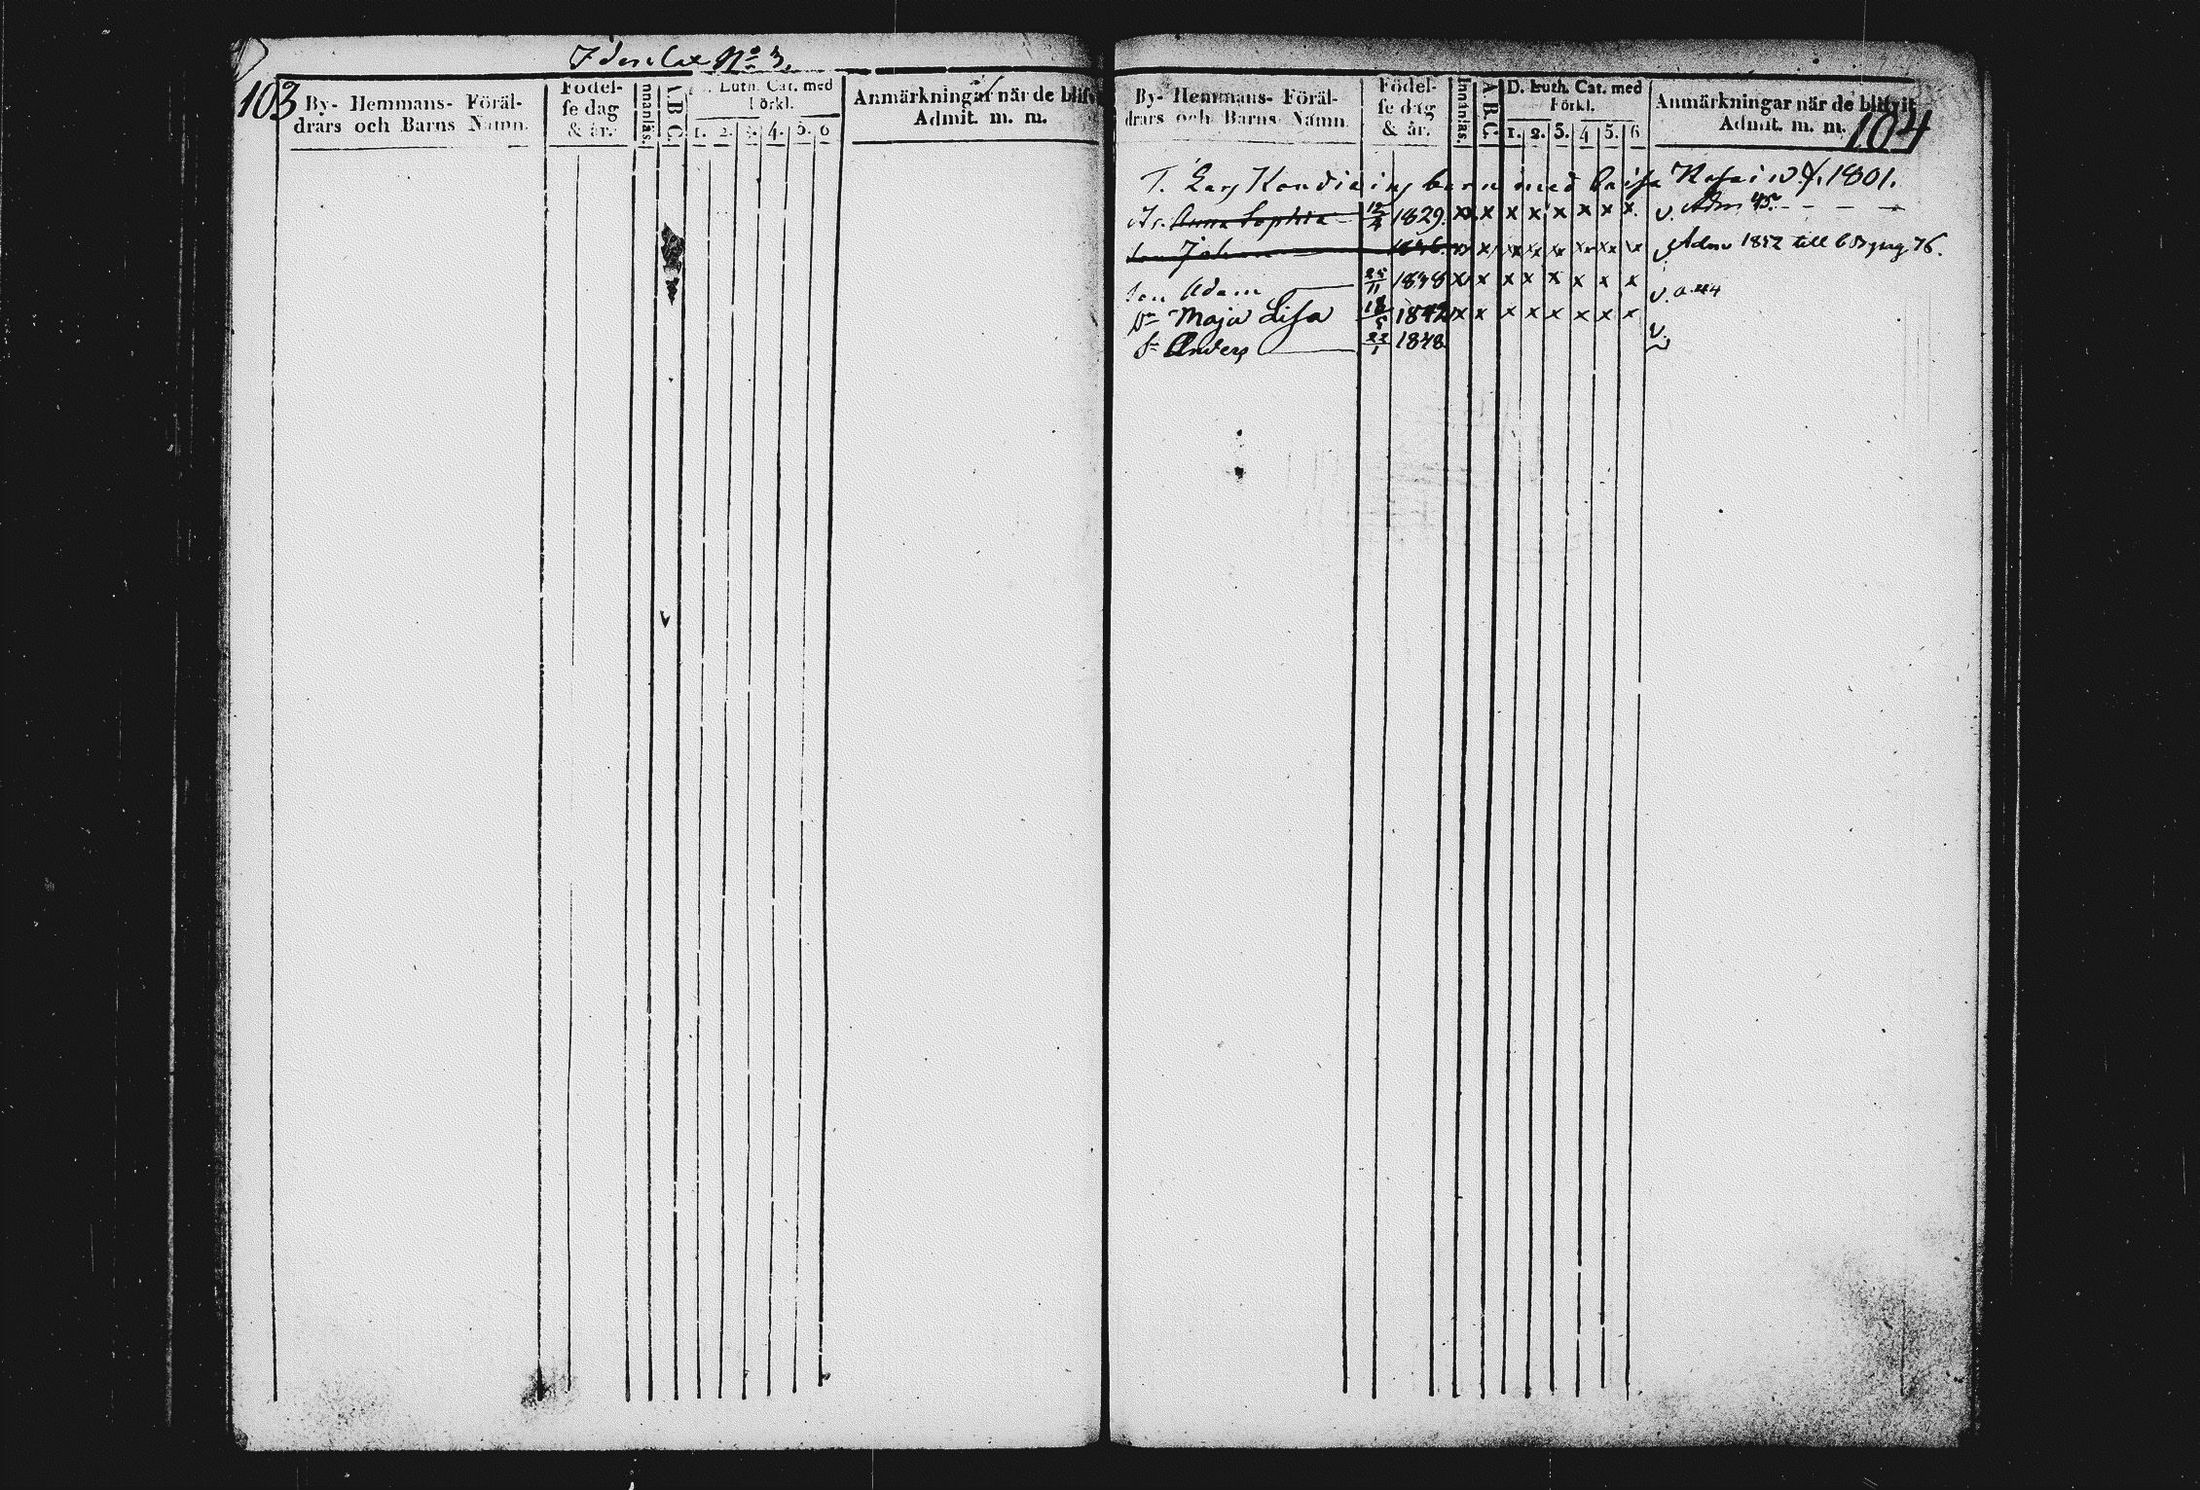 No 3.
103
By- Hemmans- Föräl-
drars och Barns Namn.
Födel-
se dag
& år.
Innanläs.
A.B.C.
D. Luth. Cat. med
Förkl.
1. 2. 3. 4. 5. 6
Anmärkningar när de blifvit
Admit. m. m.
By- Hemmans- Föräl-
drars och Barns Namn.
Födel-
se dag
& år.
Innanläs.
A.B.C.
D. Luth. Cat. med
Förkl.
1. 2. 3. 4 5. 6
Anmärkningar när de blifvit
Admit. m. m.
104
T. Lars barn med 1801.
Anna Sophia 1829. x x x x x x x x v. Adm 45.
son Johan x x x x x x x x v. Adm 1852 till
son Adam 25/11 1838 x x x x x x x x v.
Maja Lisa 18/5 1842 x x x x x x x x v.
Anders 22/1 1848